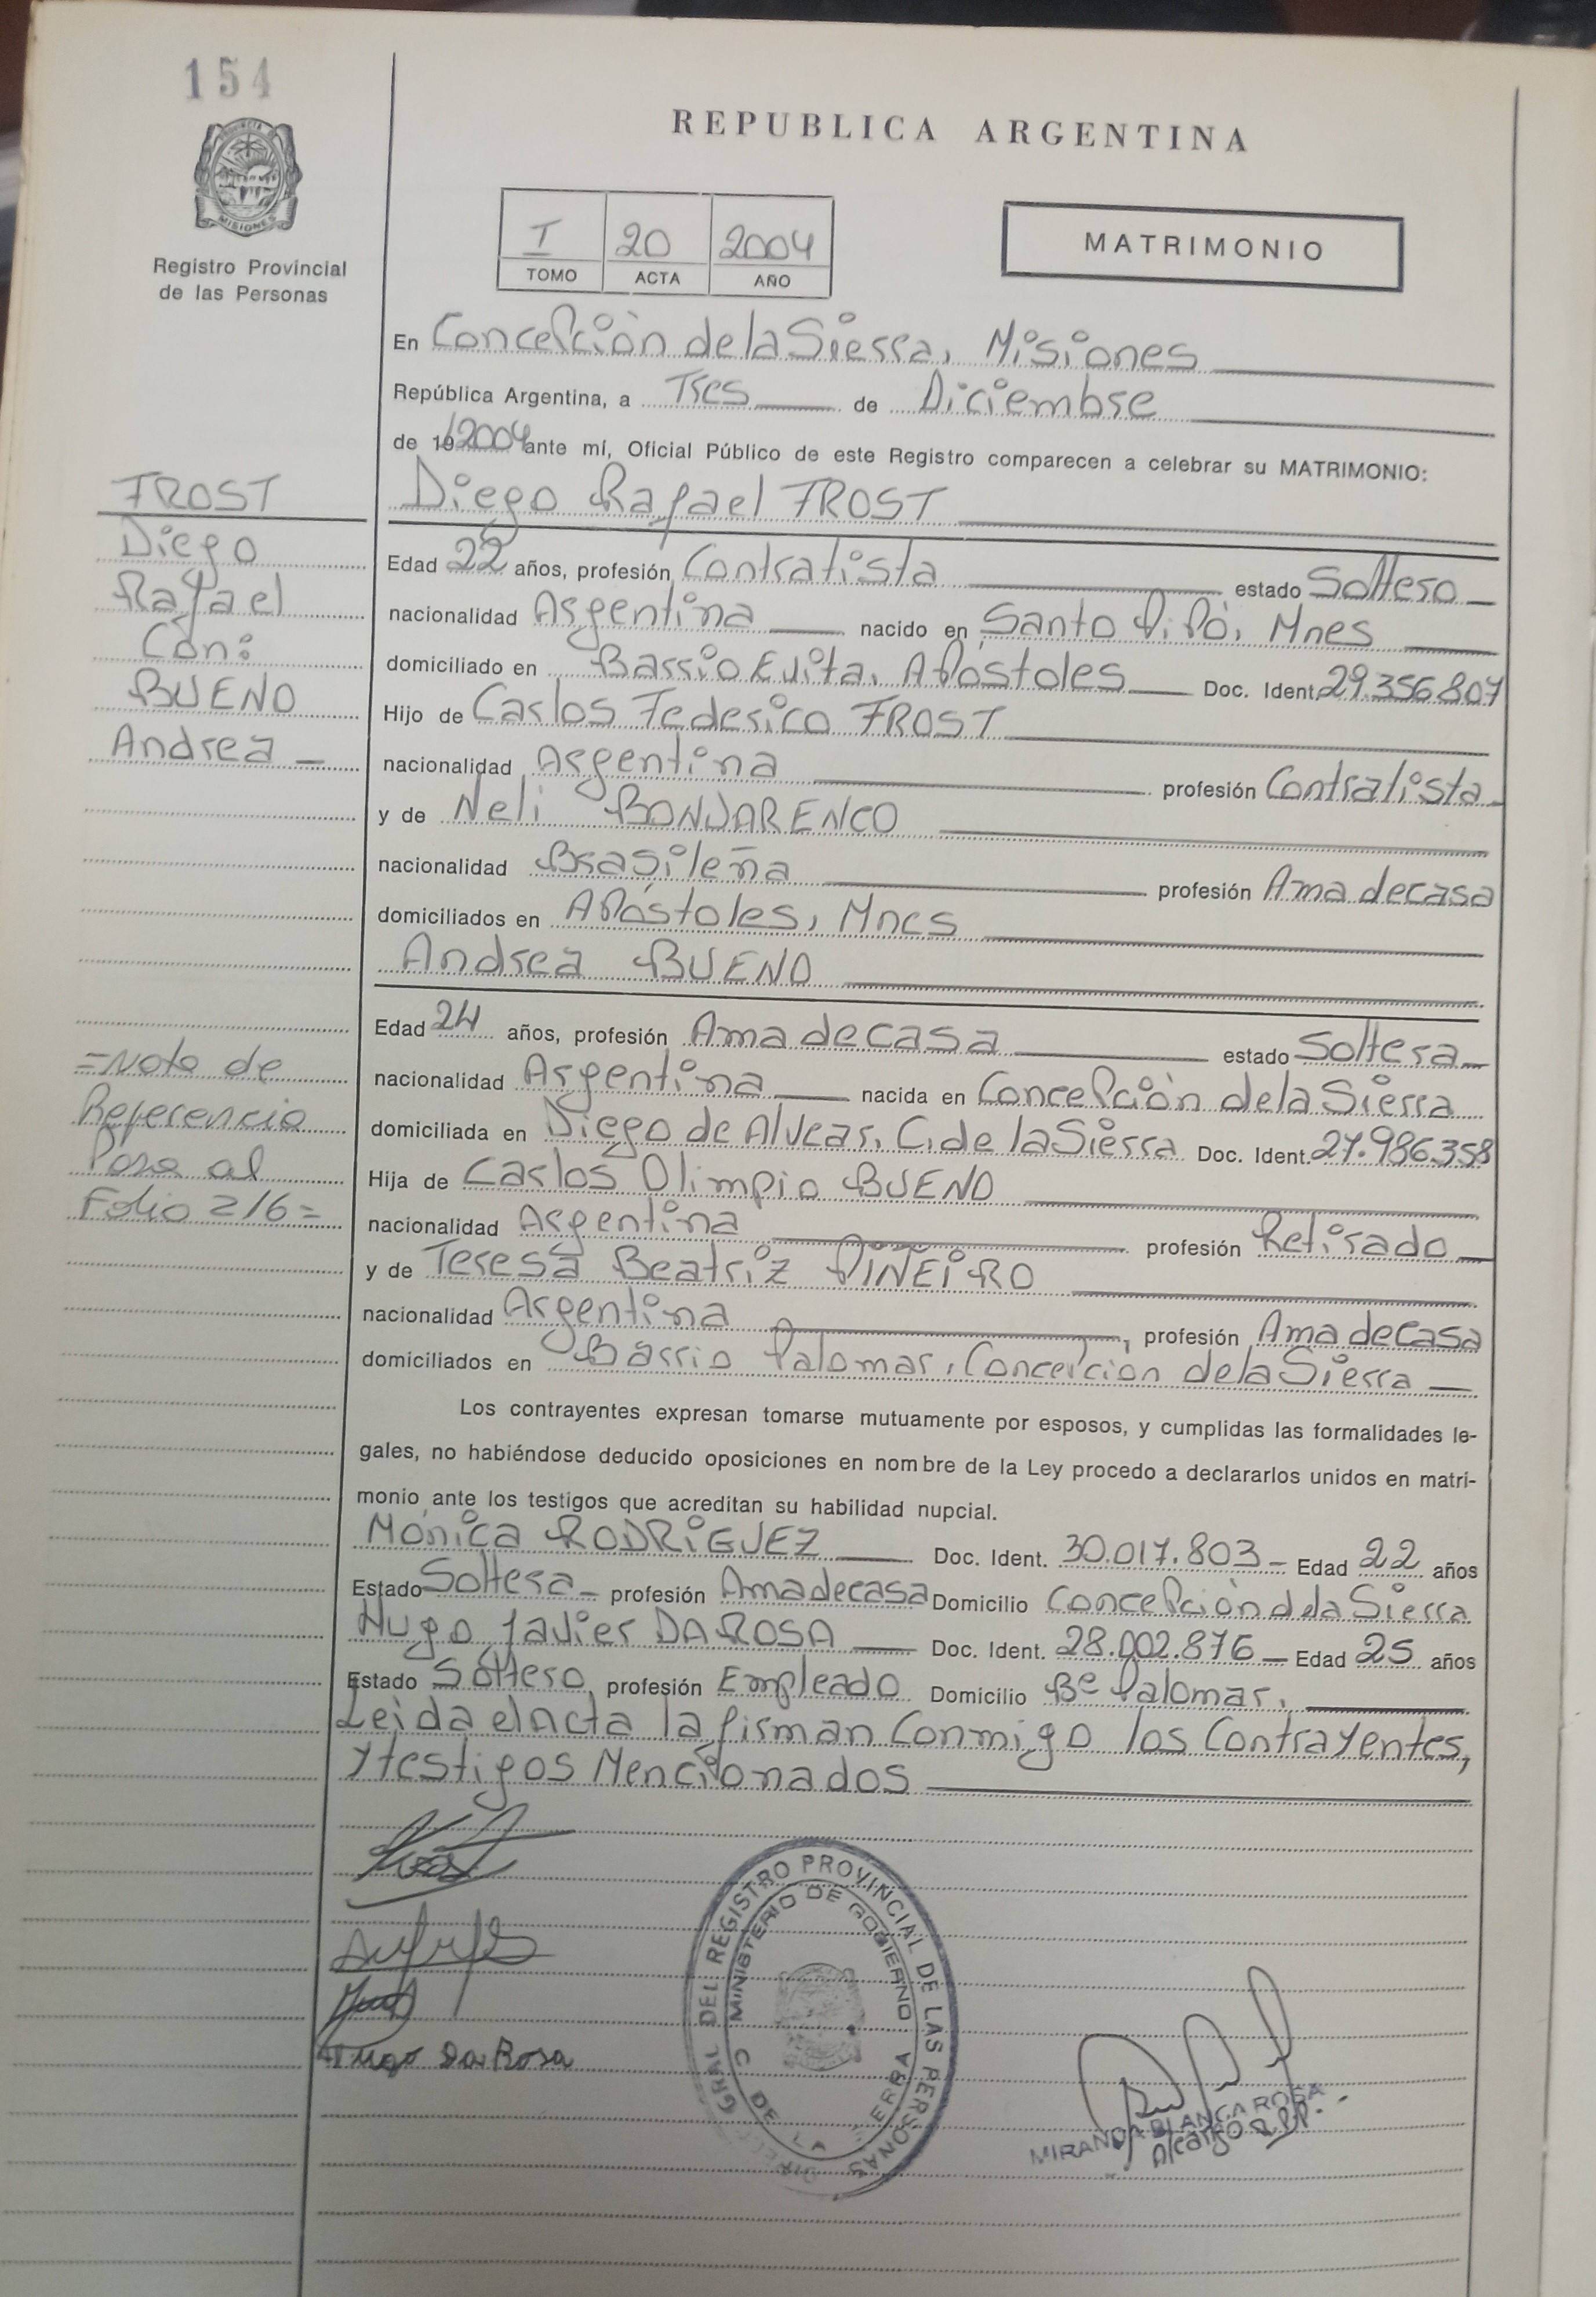 154
PROVINCIA DE
MISIONES
Registro Provincial
de las Personas
REPUBLICA ARGENTINA
I 20 2004
TOMO ACTA AÑO
MATRIMONIO
En Concepción de la Sierra, Misiones
República Argentina, a Tres de Diciembre
de 19 2004 ante mí, Oficial Público de este Registro comparecen a celebrar su MATRIMONIO:
FROST
Diego
Rafael
Con:
BUENO
Andrea
=Nota de
Referencia
Pasa al
Folio 216=
Diego Rafael FROST
Edad 22 años, profesión Contratista estado Soltero
nacionalidad Argentina nacido en Santo Pipó, Mnes
domiciliado en Barrio Evita, Apóstoles Doc. Ident. 29.356.807
Hijo de Carlos Federico FROST
nacionalidad Argentina profesión Contratista
y de Neli BONDARENCO
nacionalidad Brasileña profesión Ama de casa
domiciliados en Apóstoles, Mnes
Andrea BUENO
Edad 24 años, profesión Ama de casa estado Soltera
nacionalidad Argentina nacida en Concepción de la Sierra
domiciliada en Diego de Alvear, C. de la Sierra Doc. Ident. 27.986.358
Hija de Carlos Olimpio BUENO
nacionalidad Argentina profesión Retirado
y de Teresa Beatriz PIÑEIRO
nacionalidad Argentina, profesión Ama de casa
domiciliados en Barrio Palomar, Concepción de la Sierra
Los contrayentes expresan tomarse mutuamente por esposos, y cumplidas las formalidades le-
gales, no habiéndose deducido oposiciones en nombre de la Ley procedo a declararlos unidos en matri-
monio ante los testigos que acreditan su habilidad nupcial.
Mónica RODRIGUEZ Doc. Ident. 30.017.803 Edad 22 años
Estado Soltera profesión Ama de casa Domicilio Concepción de la Sierra
Hugo Javier DA ROSA Doc. Ident. 28.002.876 Edad 25 años
Estado Soltero profesión Empleado Domicilio Bº Palomar.
Leida el Acta la firman Conmigo los Contrayentes,
y testigos Mencionados
Hugo Da Rosa
GRAL DEL REGISTRO PROVINCIAL DE LAS PERSONAS
MINISTERIO DE GOBIERNO
C DE LA
MIRANDA BLANCA ROSA
A/cargo R.P.P.